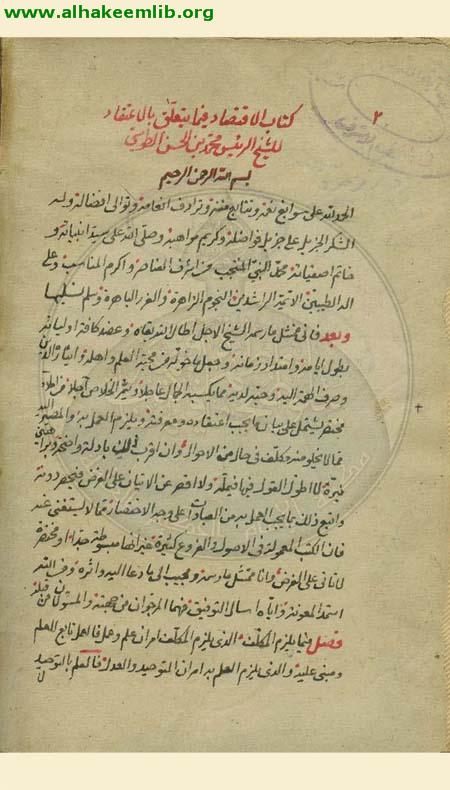 www.alhakeemlib.org
٢
كتاب الاقتصاد فيما يتعلق بالاعتقاد
للشيخ الرئيس محمد بن الحسن الطوسي
بسم الله الرحمن الرحيم
الحمد لله على سوابغ نعمه ونتايج مننه وترادف انعامه وتوالى افضاله وله
الشكر الجزيل على جزيل فواضله وكريم مواهبه وصلى الله على سيد انبيائه و
خاتم اصفيائه محمد النبي المنتجب من اشرف العناصر واكرم المناسب وعلى
اله الطيبين الائمة الراشدين النجوم الزاهرة والغرر الباهرة وسلم تسليما
وبعد فانى ممتثل ما رسمه الشيخ الاجل اطال الله بقاه وعضد كافة اوليائه
بطول ايامه وامتداد زمانه وجعل ما خوله من محبة العلم واهله وايثار الدين
وصرف الهمة اليه وحببه لديه مما يكسبه الجمال عاجلا ويثمر الخلاص آجلا من املاء
مختصر يشتمل على بيان ما يجب اعتقاده ومعرفته ويلزم العمل به والمصير اليه
مما لا يخلو منه مكلف فى حال من الاحوال وان اقرب ذلك بادلة واضحة
لا اطول القول فيها فيمله ولا اقصر عن الاتيان على الغرض فيخس دونه
واتبع ذلك بما يجب العمل به من العبادات على وجه الاختصار مما لا يستغنى عنه
فان الكتب المعمولة فى الاصول والفروع كثيرة غير انها مبسوطة جدا او مختصرة
لا تأتى على الغرض وانا ممتثل ما رسمه ومجيب الى ما دعا اليه واثره ومن الله
استمد المعونة واياه اسال التوفيق فهما المرجوان من جهته والمسئولان من قبله
فصل فيما يلزم المكلف الذى يلزم المكلف امران علم وعمل فالعمل تابع للعلم
ومبنى عليه والذى يلزم العلم به امران التوحيد والعدل فالعلم بالتوحيد